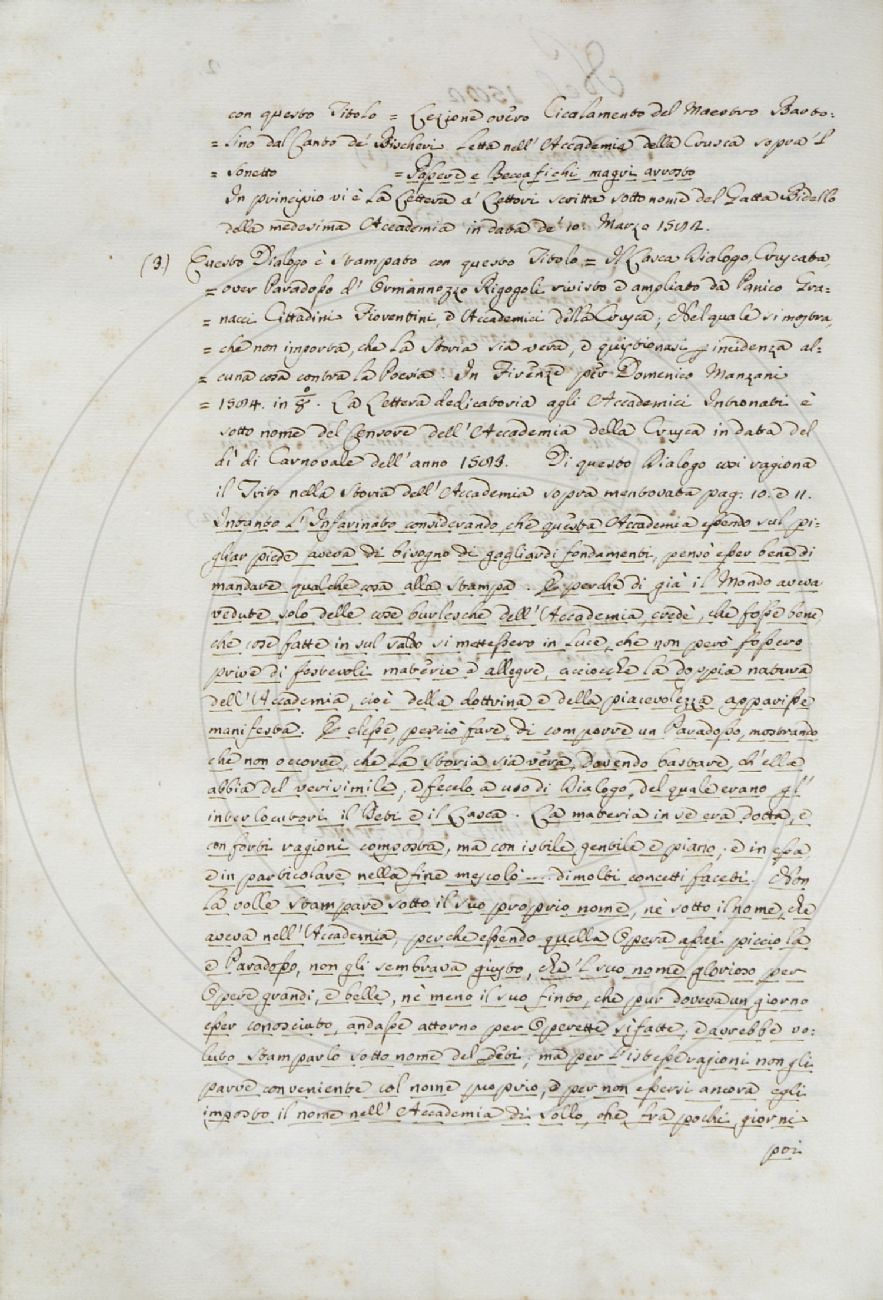 con questo Titolo = Lezione overo Cicalamento del Maestro Barto:
= lino dal Canto de' Bischeri letta nell' Accademia della Crusca sopra 'l
= Sonetto = Passere e Beccafichi magri arrosto
In principio vi è la Lettera a' Lettori scritta sotto nome del Gatta Bidello
della medesima Accademia in data de' 10. Marzo
(3.) Questo Dialogo è stampato con questo Titolo = Il Lasca Dialogo, Cruscata,
= over Paradosso d' Ormannozzo Rigogoli rivisto e ampliato da Panico Gra=
= nacci Cittadini Fiorentini, e Accademici della Crusca; Nel quale si mostra,
= che non importa, che la Storia sia vera, e quistionasi p incidenza al=
= cuna cosa contra la Poesia. In Firenze per Domenico Manzani
= 1584. in 8.° La Lettera dedicatoria agli Accademici Intronati è
sotto nome del Censore dell' Accademia della Crusca in data del
dì di Carnovale dell' anno 1583. Di questo Dialogo così ragiona
il Trito nella Storia dell' Accademia sopra mentovata pag: 10. e 11.
Intanto l' Infarinato considerando, che questa Accademia essendo sul pi=
gliar piede aveva di bisogno di gagliardi fondamenti, pensò esser bene di
mandare qualche cosa alla stampa. E perche di già il Mondo aveva
vedute solo delle cose burlesche dell' Accademia, credè, che fosse bene
che cose fatte in sul saldo si mettessero in luce, che non però fossero
prive di festevoli materie e allegre, acciocche la doppia natura
dell' Accademia, cioè della dottrina e della piacevolezza apparisse
manifesta. E elesse, perciò fare, di comporre un Paradosso, mostrando
che non occorre, che la Storia sia vera, dovendo bastare, ch' ella
abbia del verisimile, e fecelo a uso di Dialogo, del quale erano gl'
interlocutori il Deti e il Lasca. La materia in se era dotta, e
con forti ragioni composta, ma con istile gentile e piano; e in essa,
e in particolare nella fine mescolò .... di molti concetti faceti. Non
la volle stampare sotto il suo proprio nome, nè sotto il nome, che
aveva nell' Accademia, perche essendo quella Opera assai picciola
e Paradosso, non gli sembrava giusto, che 'l suo nome glorioso per
Opere grandi, e belle, nè meno il suo finto, che pur doveva un giorno
esser conosciuto, andasse attorno per Operette sì fatte, e avrebbe vo=
luto stamparlo sotto nome del Deti; ma per l' istesse ragioni non gli
parve conveniente col nome proprio, e per non essersi ancora egli
imposto il nome nell' Accademia di Sollo, che fra pochi giorni
poi